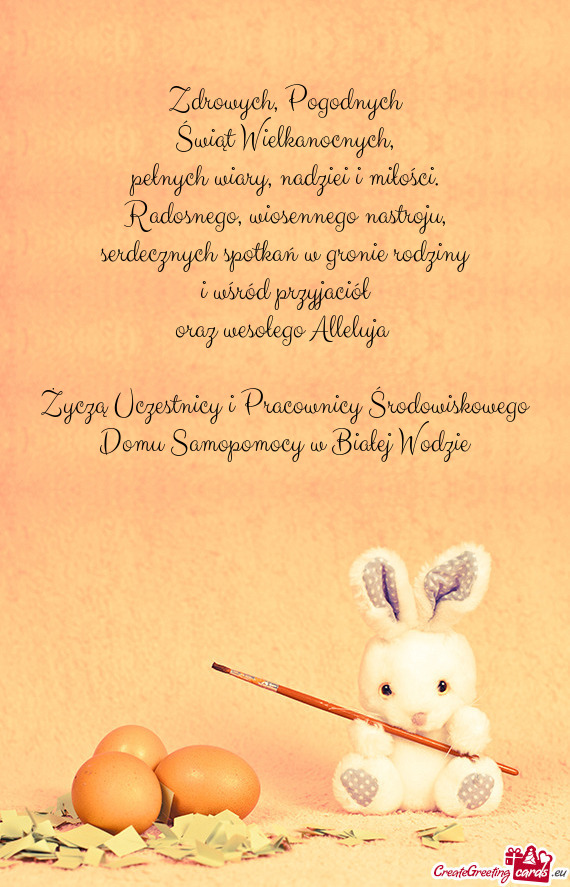 Zdrowych, Pogodnych
Świąt Wielkanocnych,
pełnych wiary, nadziei i miłości.
Radosnego, wiosennego nastroju,
serdecznych spotkań w gronie rodziny
i wśród przyjaciół
oraz wesołego Alleluja
Życzą Uczestnicy i Pracownicy Środowiskowego
Domu Samopomocy w Białej Wodzie
CreateGreeting cards .eu